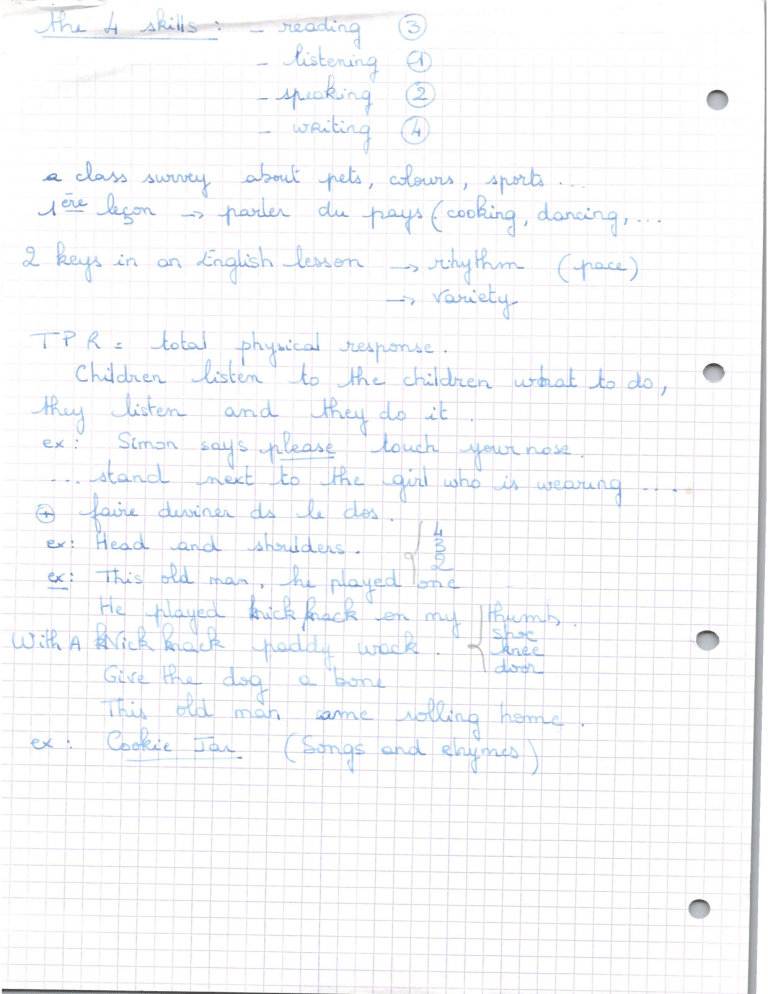 the 4 skills : - reading ③
- listening ①
- speaking ②
- writing ④
a class survey about pets, colours, sports ...
1ère leçon → parler du pays (cooking, dancing, ...
2 keys in an English lesson → rhythm (pace)
→ variety
TPR = total physical response.
Children listen to the children what to do,
they listen and they do it.
ex : Simon says please touch your nose.
... stand next to the girl who is wearing ....
⊕ faire deviner ds le dos.
ex : Head and shoulders.
4
3
2
ex : This old man, he played one
He played knick knack on my thumb.
shoe
knee
door
With A kNick knack paddy wack.
Give the dog a bone
This old man came rolling home.
ex : Cookie Jar (Songs and rhymes)